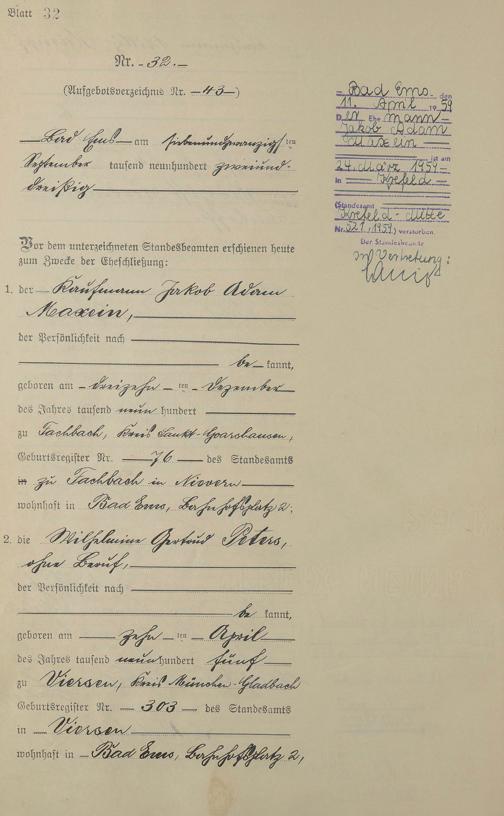 Blatt 32
Nr. - 32. -
(Aufgebotsverzeichnis Nr. - 43 -)
Bad Ems am siebenundzwanzigsten
September tausend neunhundert zweiund-
dreißig
Vor dem unterzeichneten Standesbeamten erschienen heute
zum Zwecke der Eheschließung:
1. der Kaufmann Jakob Adam
Maxein,
der Persönlichkeit nach
be kannt,
geboren am dreizehn ten Dezember
des Jahres tausend neun hundert
zu Fachbach, Kreis Sankt-Goarshausen,
Geburtsregister Nr. 76 des Standesamts
in zu Fachbach in Nievern
wohnhaft in Bad Ems, Bahnhofsplatz 2,
2. die Wilhelmine Gertrud Peters,
ohne Beruf,
der Persönlichkeit nach
be kannt,
geboren am zehn ten April
des Jahres tausend neunhundert fünf
zu Viersen, Kreis München-Gladbach
Geburtsregister Nr. 303 des Standesamts
in Viersen
wohnhaft in Bad Ems, Bahnhofsplatz 2,
Bad Ems, den
11. April 1959
Der Ehemann
Jakob Adam
Maxein
ist am
24. März 1959
in Krefeld
(Standesamt
Krefeld-Mitte
Nr. 521/1959) verstorben.
Der Standesbeamte
In Vertretung: